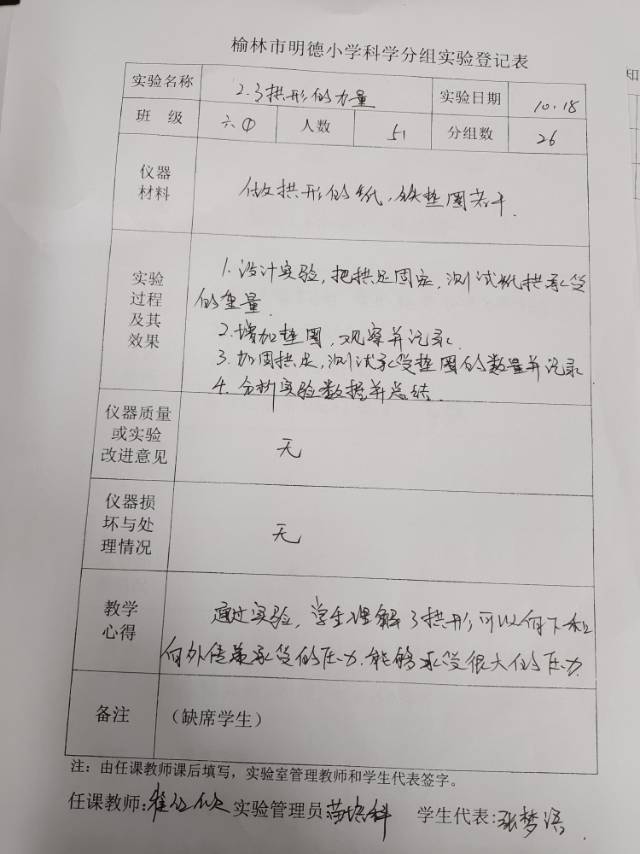 榆林市明德小学科学分组实验登记表
实验名称 2.3拱形的力量 实验日期 10.18
班 级 六① 人数 51 分组数 26
仪器材料 做拱形的纸,铁垫圈若干.
实验过程及其效果
1.设计实验,把拱足固定,测试纸拱承受
的重量.
2.增加垫圈,观察并记录.
3.加固拱足,测试承受垫圈的数量并记录
4.分析实验数据并总结.
仪器质量或实验改进意见 无
仪器损坏与处理情况 无
教学心得
通过实验,学生理解了拱形可以向下和
向外传递承受的压力,能够承受很大的压力.
备注 (缺席学生)
注:由任课教师课后填写,实验室管理教师和学生代表签字。
任课教师: 实验管理员 学生代表:张梦语
知